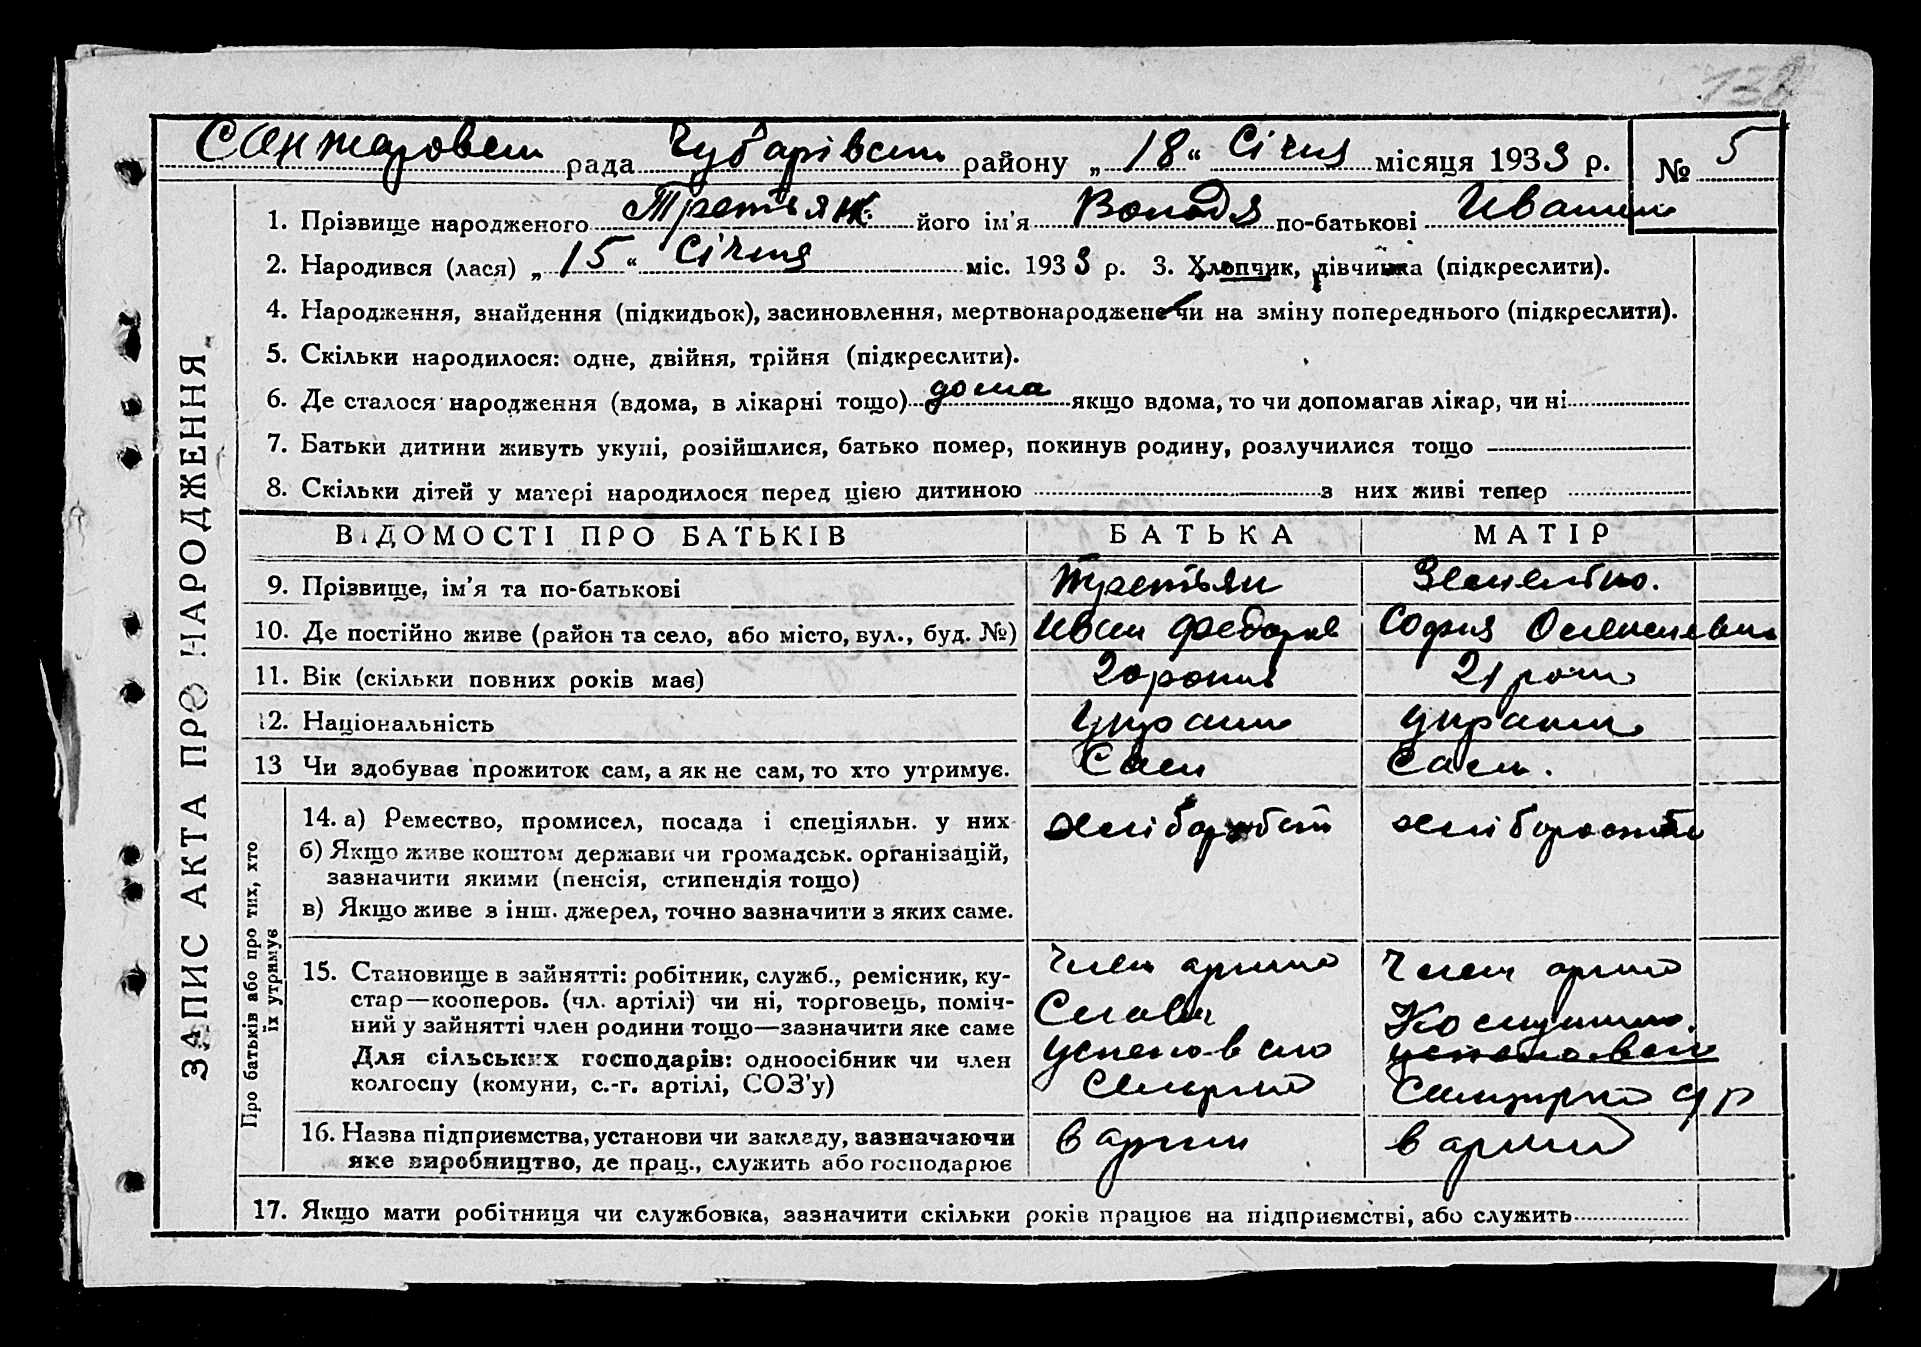 138
Санжаровск рада Чубарівськ району „18“ Січня місяця 1933 р. № 5
1. Прізвище народженого Третьяк його ім’я Володя по-батькові Иванич
2. Народився (лася) „15“ Січня міс. 1933 р. 3. Хлопчик, дівчинка (підкреслити).
4. Народження, знайдення (підкидьок), засиновлення, мертвонароджене чи на зміну попереднього (підкреслити).
5. Скільки народилося: одне, двійня, трійня (підкреслити).
6. Де сталося народження (вдома, в лікарні тощо) дома якщо вдома, то чи допомагав лікар, чи ні
7. Батьки дитини живуть укупі, розійшлися, батько помер, покинув родину, розлучилися тощо
8. Скільки дітей у матері народилося перед цією дитиною з них живі тепер
ЗАПИС АКТА ПРО НАРОДЖЕННЯ
ВІДОМОСТІ ПРО БАТЬКІВ БАТЬКА МАТІР
9. Прізвище, ім’я та по-батькові Третьяк
10. Де постійно живе (район та село, або місто, вул., буд. №) Иван Федоров София
11. Вік (скільки повних років має) 20 років 21 роки
12. Національність
13 Чи здобуває прожиток сам, а як не сам, то хто утримує. Сам Сам.
Про батьків або про тих, хто
їх утримує
14. а) Ремество, промисел, посада і спеціяльн. у них хлібороб
б) Якщо живе коштом держави чи громадськ. організацій,
зазначити якими (пенсія, стипендія тощо)
в) Якщо живе з інш. джерел, точно зазначити з яких саме.
15. Становище в зайнятті: робітник, служб., ремісник, ку-
стар—кооперов. (чл. артілі) чи ні, торговець, поміч-
ний у зайнятті член родини тощо—зазначити яке саме
Для сільських господарів: одноосібник чи член
колгоспу (комуни, с.-г. артілі, СОЗ’у)
Член Член
16. Назва підприємства, установи чи закладу, зазначаючи
яке виробництво, де прац., служить або господарює
в в
17. Якщо мати робітниця чи службовка, зазначити скільки років працює на підприємстві, або служить